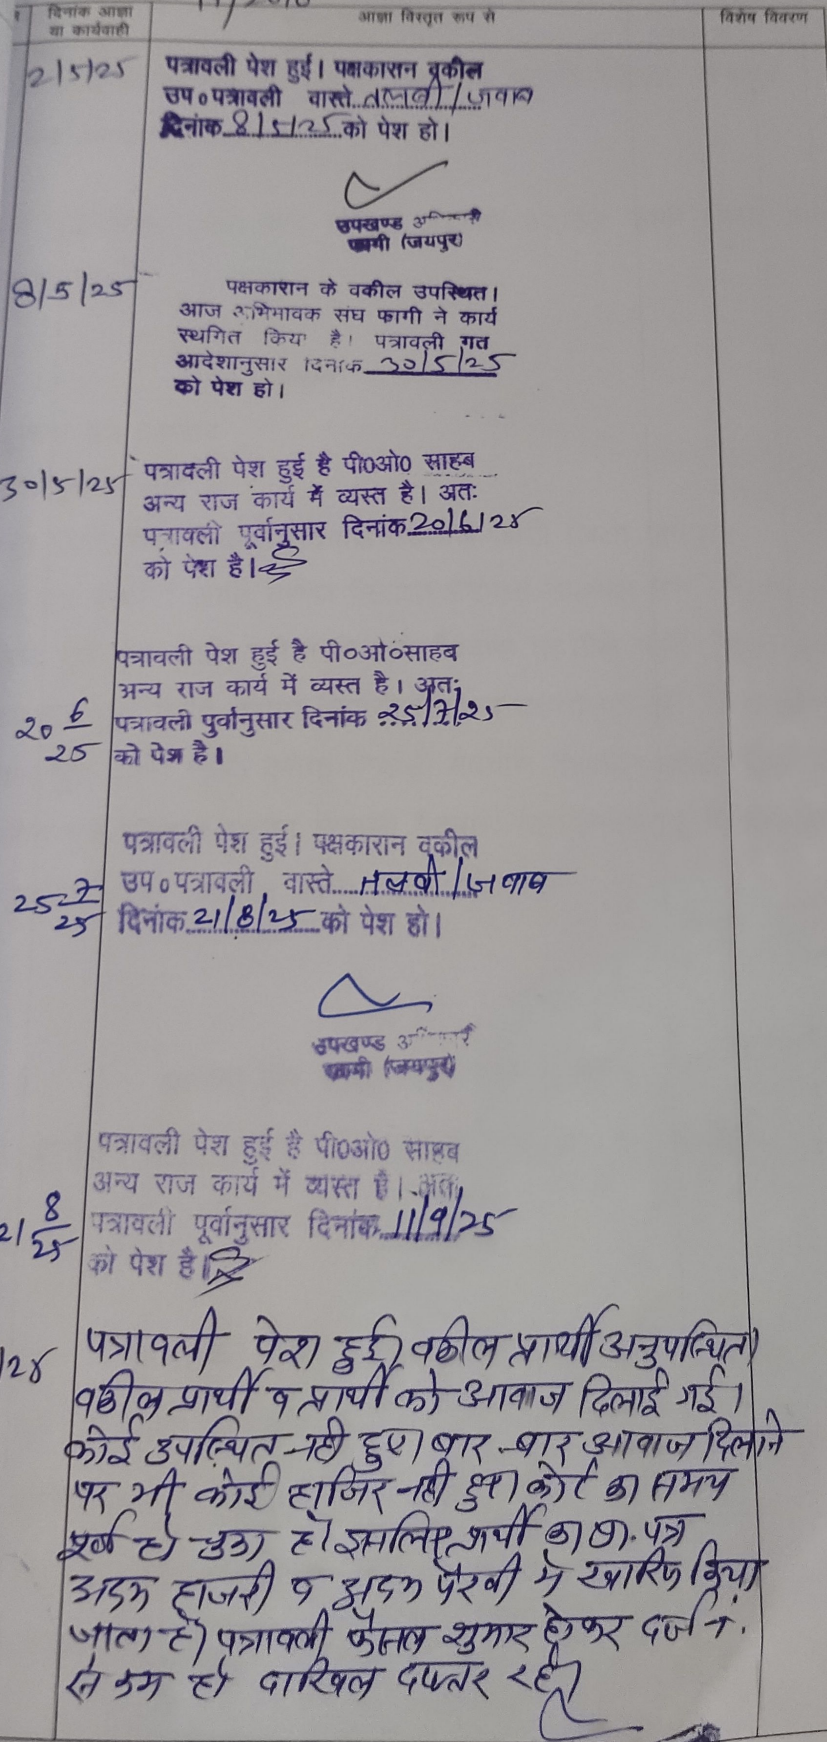 दिनांक आज्ञा
या कार्यवाही
आज्ञा विस्तृत रूप से
विशेष विवरण
2/5/25
पत्रावली पेश हुई। पक्षकारान वकील
उप० पत्रावली वास्ते तलबी/जवाब
दिनांक 8/5/25 को पेश हो।
उपखण्ड
फागी (जयपुर)
8/5/25
पक्षकारान के वकील उपस्थित।
आज अभिभावक संघ फागी ने कार्य
स्थगित किया है। पत्रावली गत
आदेशानुसार दिनांक 30/5/25
को पेश हो।
30/5/25
पत्रावली पेश हुई है पी0ओ0 साहब
अन्य राज कार्य में व्यस्त है। अतः
पत्रावली पूर्वानुसार दिनांक 20/6/25
को पेश है।
पत्रावली पेश हुई है पी०ओ०साहब
अन्य राज कार्य में व्यस्त है। अतः
20 6/25
पत्रावली पुर्वानुसार दिनांक 25/7/25
को पेश है।
पत्रावली पेश हुई। पक्षकारान वकील
उप० पत्रावली वास्ते तलबी/जवाब
25 7/25
दिनांक 21/8/25 को पेश हो।
उपखण्ड
फागी (जयपुर)
पत्रावली पेश हुई है पी0ओ0 साहब
अन्य राज कार्य में व्यस्त है। अतः
21 8/25
पत्रावली पूर्वानुसार दिनांक 11/9/25
को पेश है।
/25
पत्रावली पेश हुई। वकील प्रार्थी अनुपस्थित।
वकील प्रार्थी व प्रार्थी को आवाज दिलाई गई।
कोई उपस्थित नही हुए। बार-बार आवाज दिलाने
पर भी कोई हाजिर नही हुए। कोर्ट का समय
पूर्ण हो चुका है। इसलिए प्रार्थी का प्रा. पत्र
अदम हाजरी व अदम पैरवी मे खारिज किया
जाता है। पत्रावली फैसल शुमार होकर दर्ज न.
से कम हो दाखिल दफ्तर रहे।